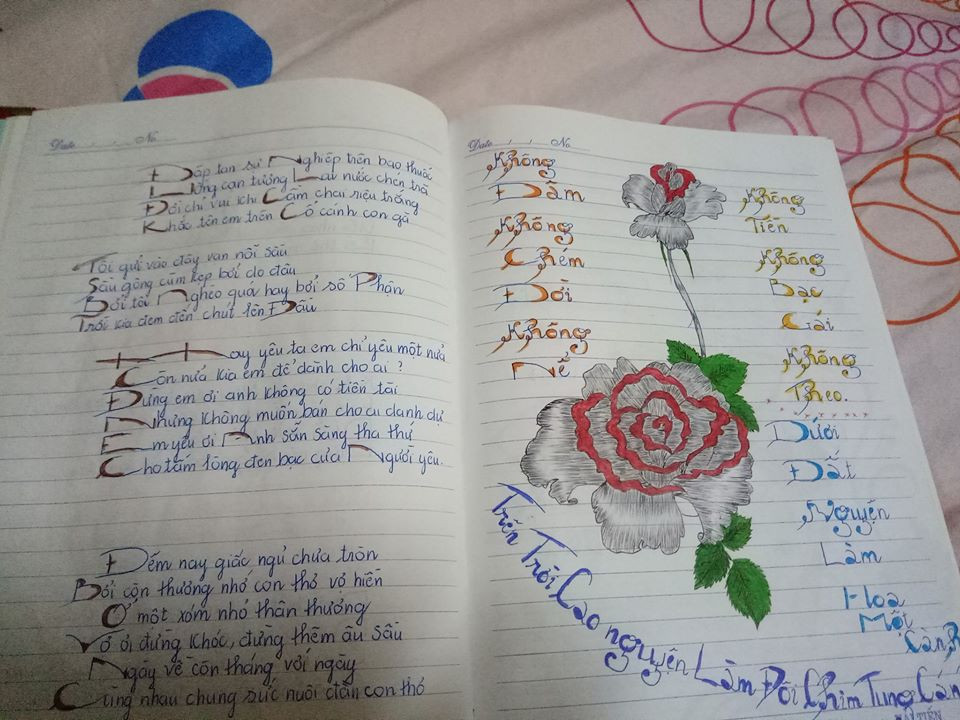 Date / / No
Đập tan sự Nghiệp trên bao thuốc
Lưỡng cạn tưởng Lai nước chén trà
Đời chỉ vui khi Cầm chai riệu trắng
Khắc tên em trên Cổ cánh con gà
Tôi gửi vào đây vạn nỗi sầu
Sầu gông cùm kẹp bởi do đâu
Bởi tôi Nghèo quá hay bởi số Phận
Trời kia đem đến chút lên Đầu
Hay yêu ta em chỉ yêu một nửa
Còn nửa kia em để dành cho ai ?
Đừng em ơi anh không có tiền tài
Nhưng không muốn bán cho ai danh dự
Em yêu ơi Anh sẵn sàng tha thứ
Cho tấm lòng đen bạc của Người yêu.
Đêm nay giấc ngủ chưa tròn
Bởi còn thương nhớ con thơ vợ hiền
Ở một xóm nhỏ thân thương
Vợ ơi đừng khóc, đừng thêm âu sầu
Ngày về còn tháng với ngày
Cùng nhau chung sức nuôi đàn con thơ
Date / / No
Không
Đâm
Không
Chém
Đời
Không
Nể
Không
Tiền
Không
Bạc
Gái
Không
Theo.
Dưới
Đất
Nguyện
Làm
Hoa
Một
Cành
Trên Trời Cao nguyện Làm Đôi Chim Tung Cánh